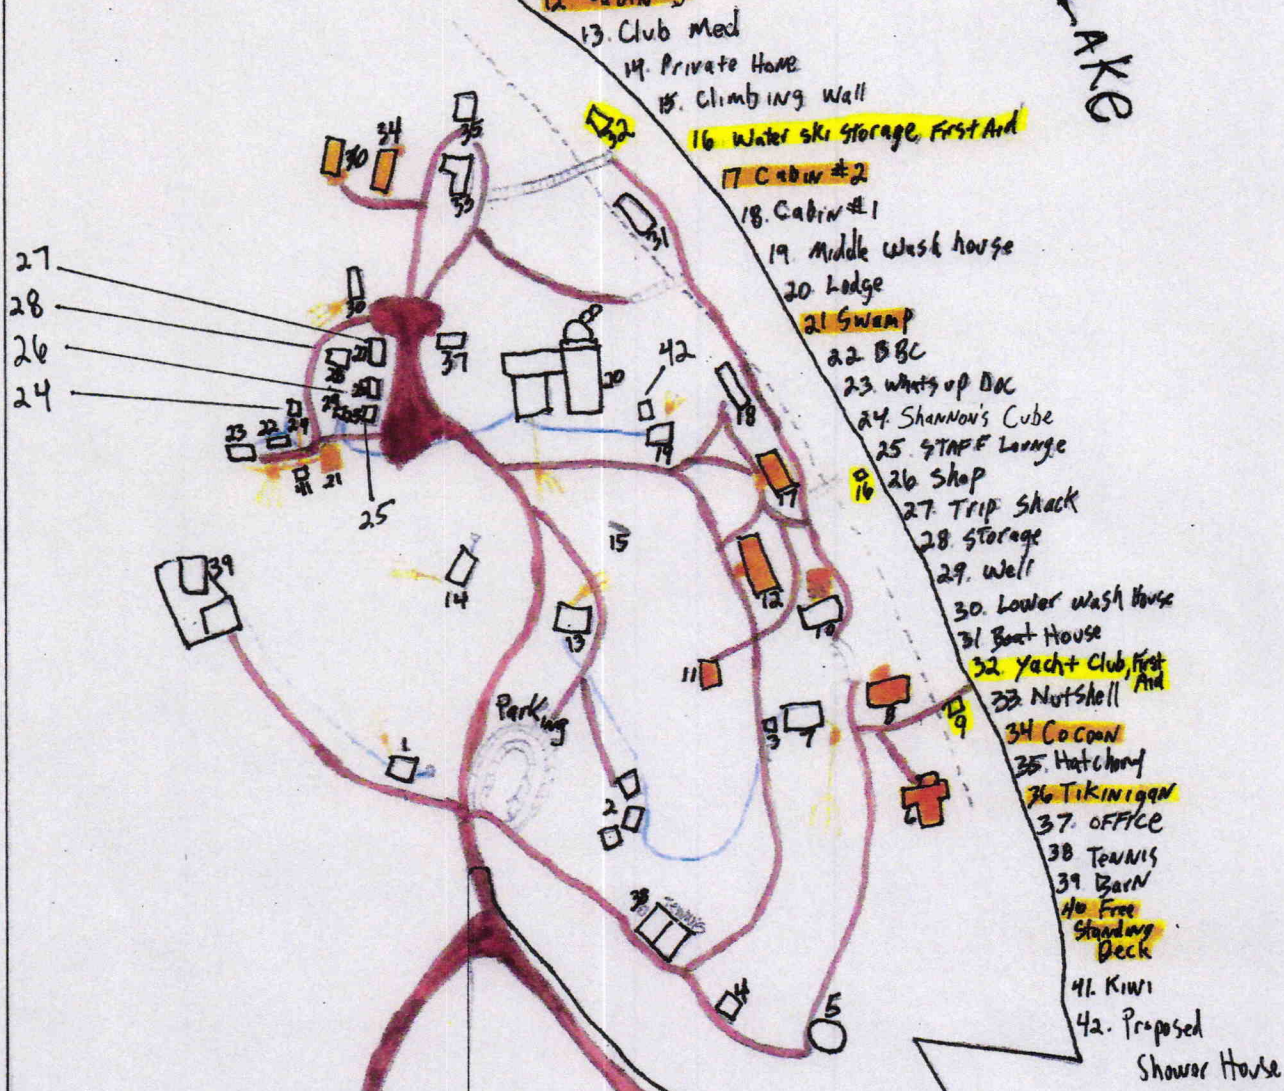 13. Club Med
14. Private Home
15. Climbing Wall
16 Water ski storage, First Aid
17 Cabin #2
18. Cabin #1
19. Middle Wash house
20. Lodge
21 Swamp
22 BBC
23. Whats up Doc
24. Shannon's Cube
25. STAFF Lounge
26 Shop
27. Trip Shack
28. Storage
29. Well
30. Lower Wash House
31 Boat House
32. Yacht Club, First
Aid
33. Nutshell
34 Cocoon
35. Hatchery
36 Tikinigan
37. OFFICE
38 Tennis
39 Barn
40 Free
Standing
Deck
41. Kiwi
42. Proposed
Shower House
LAKE
35
34
36
33
32
31
27
28
26
24
30
37
27
28
26
29
25
24
22
23
41
21
25
20
42
19
18
17
16
15
14
13
12
10
11
39
8
9
7
3
6
Parking
1
2
38
Tennis
4
5